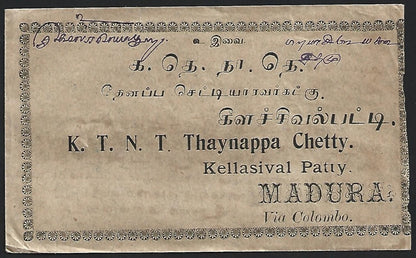 உ இவை
க. தெ. நா. தெ.
தெனப்ப செட்டியாரவர்கட்கு
கீளச்சிவல்பட்டி.
K. T. N. T. Thaynappa Chetty.
Kellasival Patty.
MADURA.
Via Colombo.